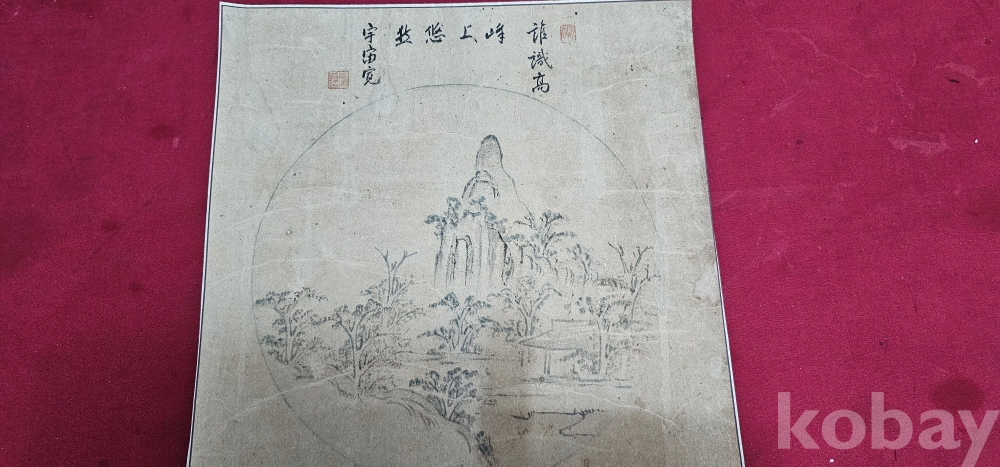 誰識高
峰上悠然
宇宙寬
kobay